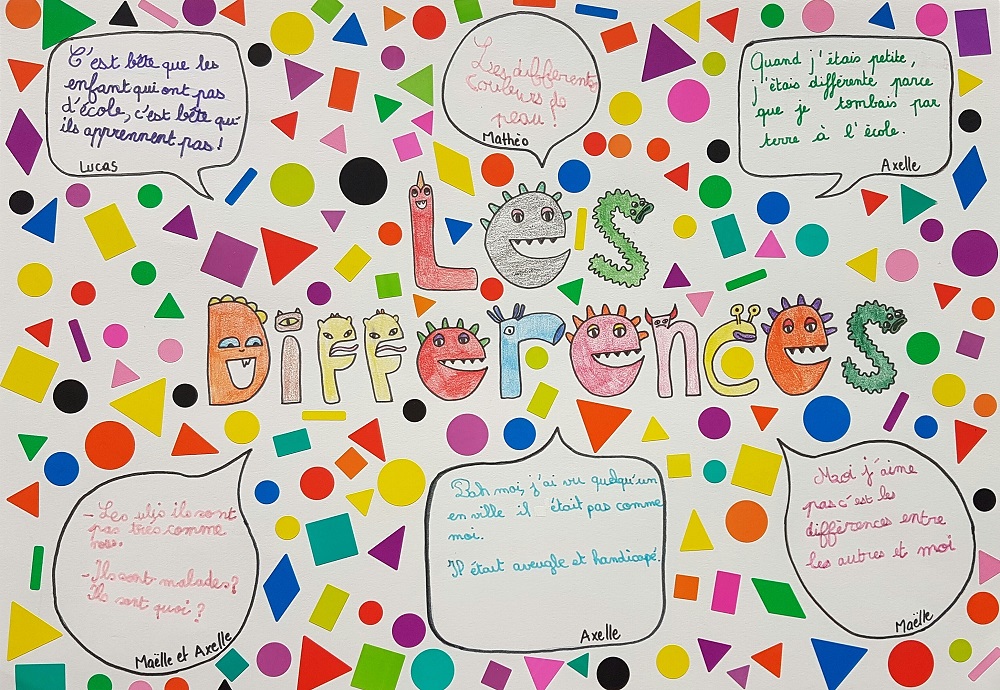 C'est bête que les
enfant qui ont pas
d'école, c'est bête qu'
ils apprennent pas !
Lucas
Les différents
couleurs de
peau !
Mathéo
Quand j'étais petite,
j'étais différente parce
que je tombais par
terre à l'école.
Axelle
Les
Differences
- Les ulis ils sont
pas très comme
nous.
- Ils sont malades ?
Ils sont quoi ?
Maëlle et Axelle
Bah moi, j'ai vu quelqu'un
en ville il était pas comme
moi.
Il était aveugle et handicapé.
Axelle
Moi j'aime
pas c'est les
différences entre
les autres et moi
Maëlle